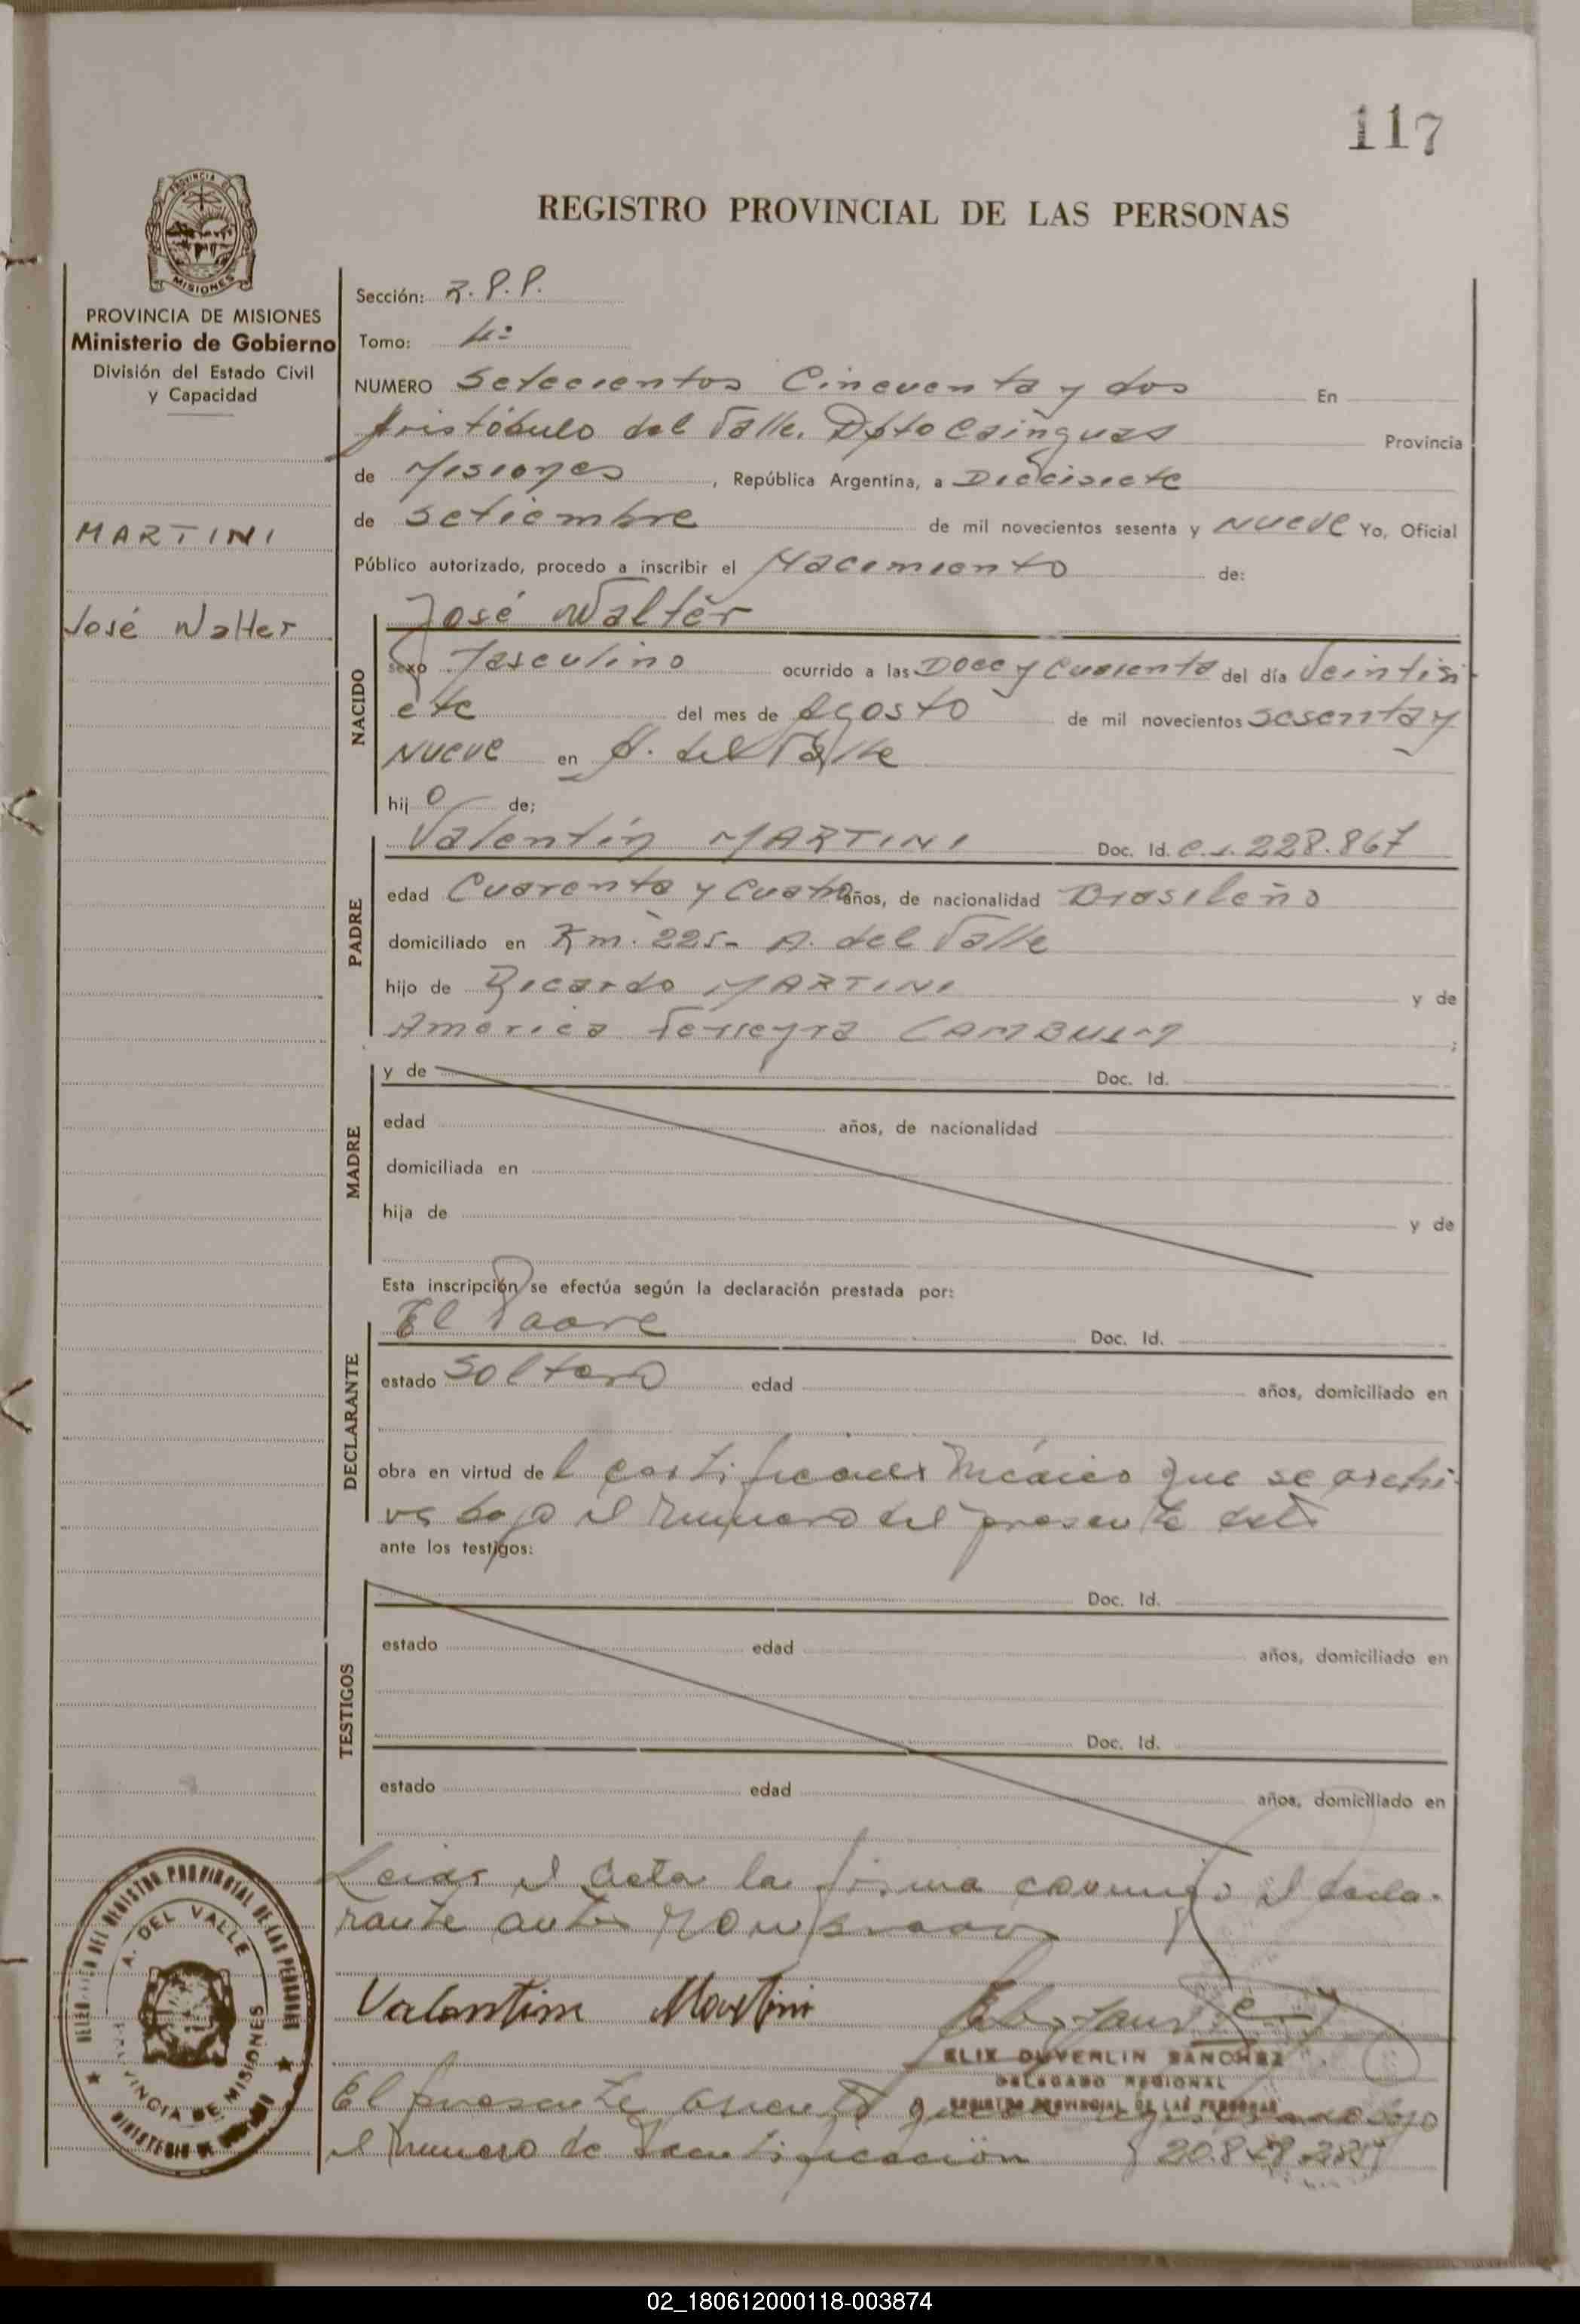 117
PROVINCIA DE
MISIONES
REGISTRO PROVINCIAL DE LAS PERSONAS
PROVINCIA DE MISIONES
Ministerio de Gobierno
División del Estado Civil
y Capacidad
MARTINI
José Walter
Sección: R.P.P.
Tomo: 4º
NUMERO Setecientos Cincuenta y dos En
Aristóbulo del Valle. Dpto Cainguas Provincia
de Misiones, República Argentina, a Diecisiete
de Setiembre de mil novecientos sesenta y NUEVE Yo, Oficial
Público autorizado, procedo a inscribir el Nacimiento de:
NACIDO
José Walter
sexo Masculino ocurrido a las Doce y Cuarenta del día Veintisi-
ete del mes de Agosto de mil novecientos sesenta y
NUEVE en A. del Valle
hijo de;
PADRE
Valentín MARTINI Doc. Id. C.I. 228.867
edad Cuarenta y Cuatro años, de nacionalidad Brasileño
domiciliado en Km. 225- A. del Valle
hijo de Ricardo MARTINI y de
América Ferreyra CAMBUIM ;
MADRE
y de Doc. Id.
edad años, de nacionalidad
domiciliada en
hija de y de
Esta inscripción se efectúa según la declaración prestada por:
DECLARANTE
El Padre Doc. Id.
estado Soltero edad años, domiciliado en
obra en virtud del certificado Médico que se archi-
va bajo el Número del presente
ante los testigos:
TESTIGOS
Doc. Id.
estado edad años, domiciliado en
Doc. Id.
estado edad años, domiciliado en
Leida el Acta la firma conmigo el decla-
rante ante
Valentim Martini
ELIX DUVERLIN SANCHEZ
DELEGADO REGIONAL
REGISTRO PROVINCIAL DE LAS PERSONAS
El presente asiento bajo
el Número de Identificación
DEL REGISTRO PROVINCIAL DE LAS PERSONAS
A. DEL VALLE
PROVINCIA DE MISIONES
MINISTERIO DE
02_180612000118-003874